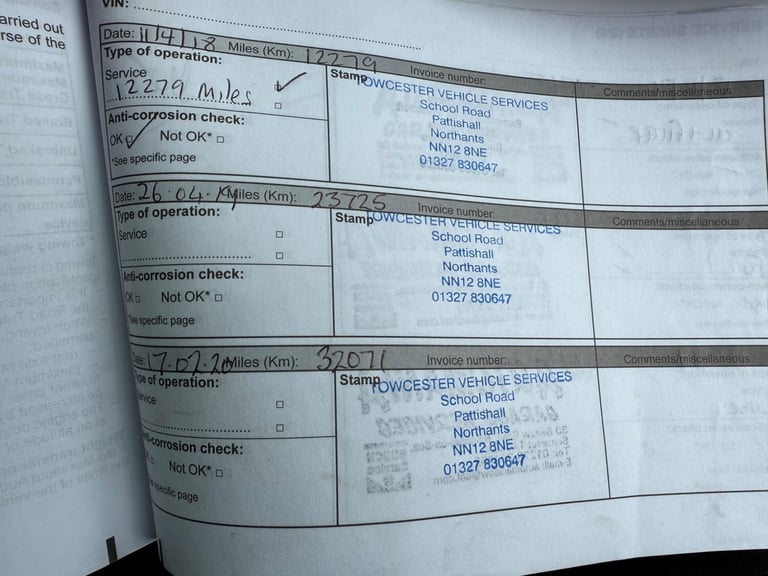 arried out
rse of the
VIN:
Date: 11/4/18 Miles (Km): 12279 Invoice number: Comments/miscellaneous
Type of operation:
Service
12279 Miles
Anti-corrosion check:
OK Not OK*
*See specific page
Stamp TOWCESTER VEHICLE SERVICES
School Road
Pattishall
Northants
NN12 8NE
01327 830647
Date: 26.04. Miles (Km): 23725 Invoice number: Comments/miscellaneous
Type of operation:
Service
Anti-corrosion check:
OK Not OK*
*See specific page
Stamp TOWCESTER VEHICLE SERVICES
School Road
Pattishall
Northants
NN12 8NE
01327 830647
Date: 17.02.20 Miles (Km): 32071 Invoice number: Comments/miscellaneous
ype of operation:
rvice
ti-corrosion check:
Not OK*
specific page
Stamp TOWCESTER VEHICLE SERVICES
School Road
Pattishall
Northants
NN12 8NE
01327 830647